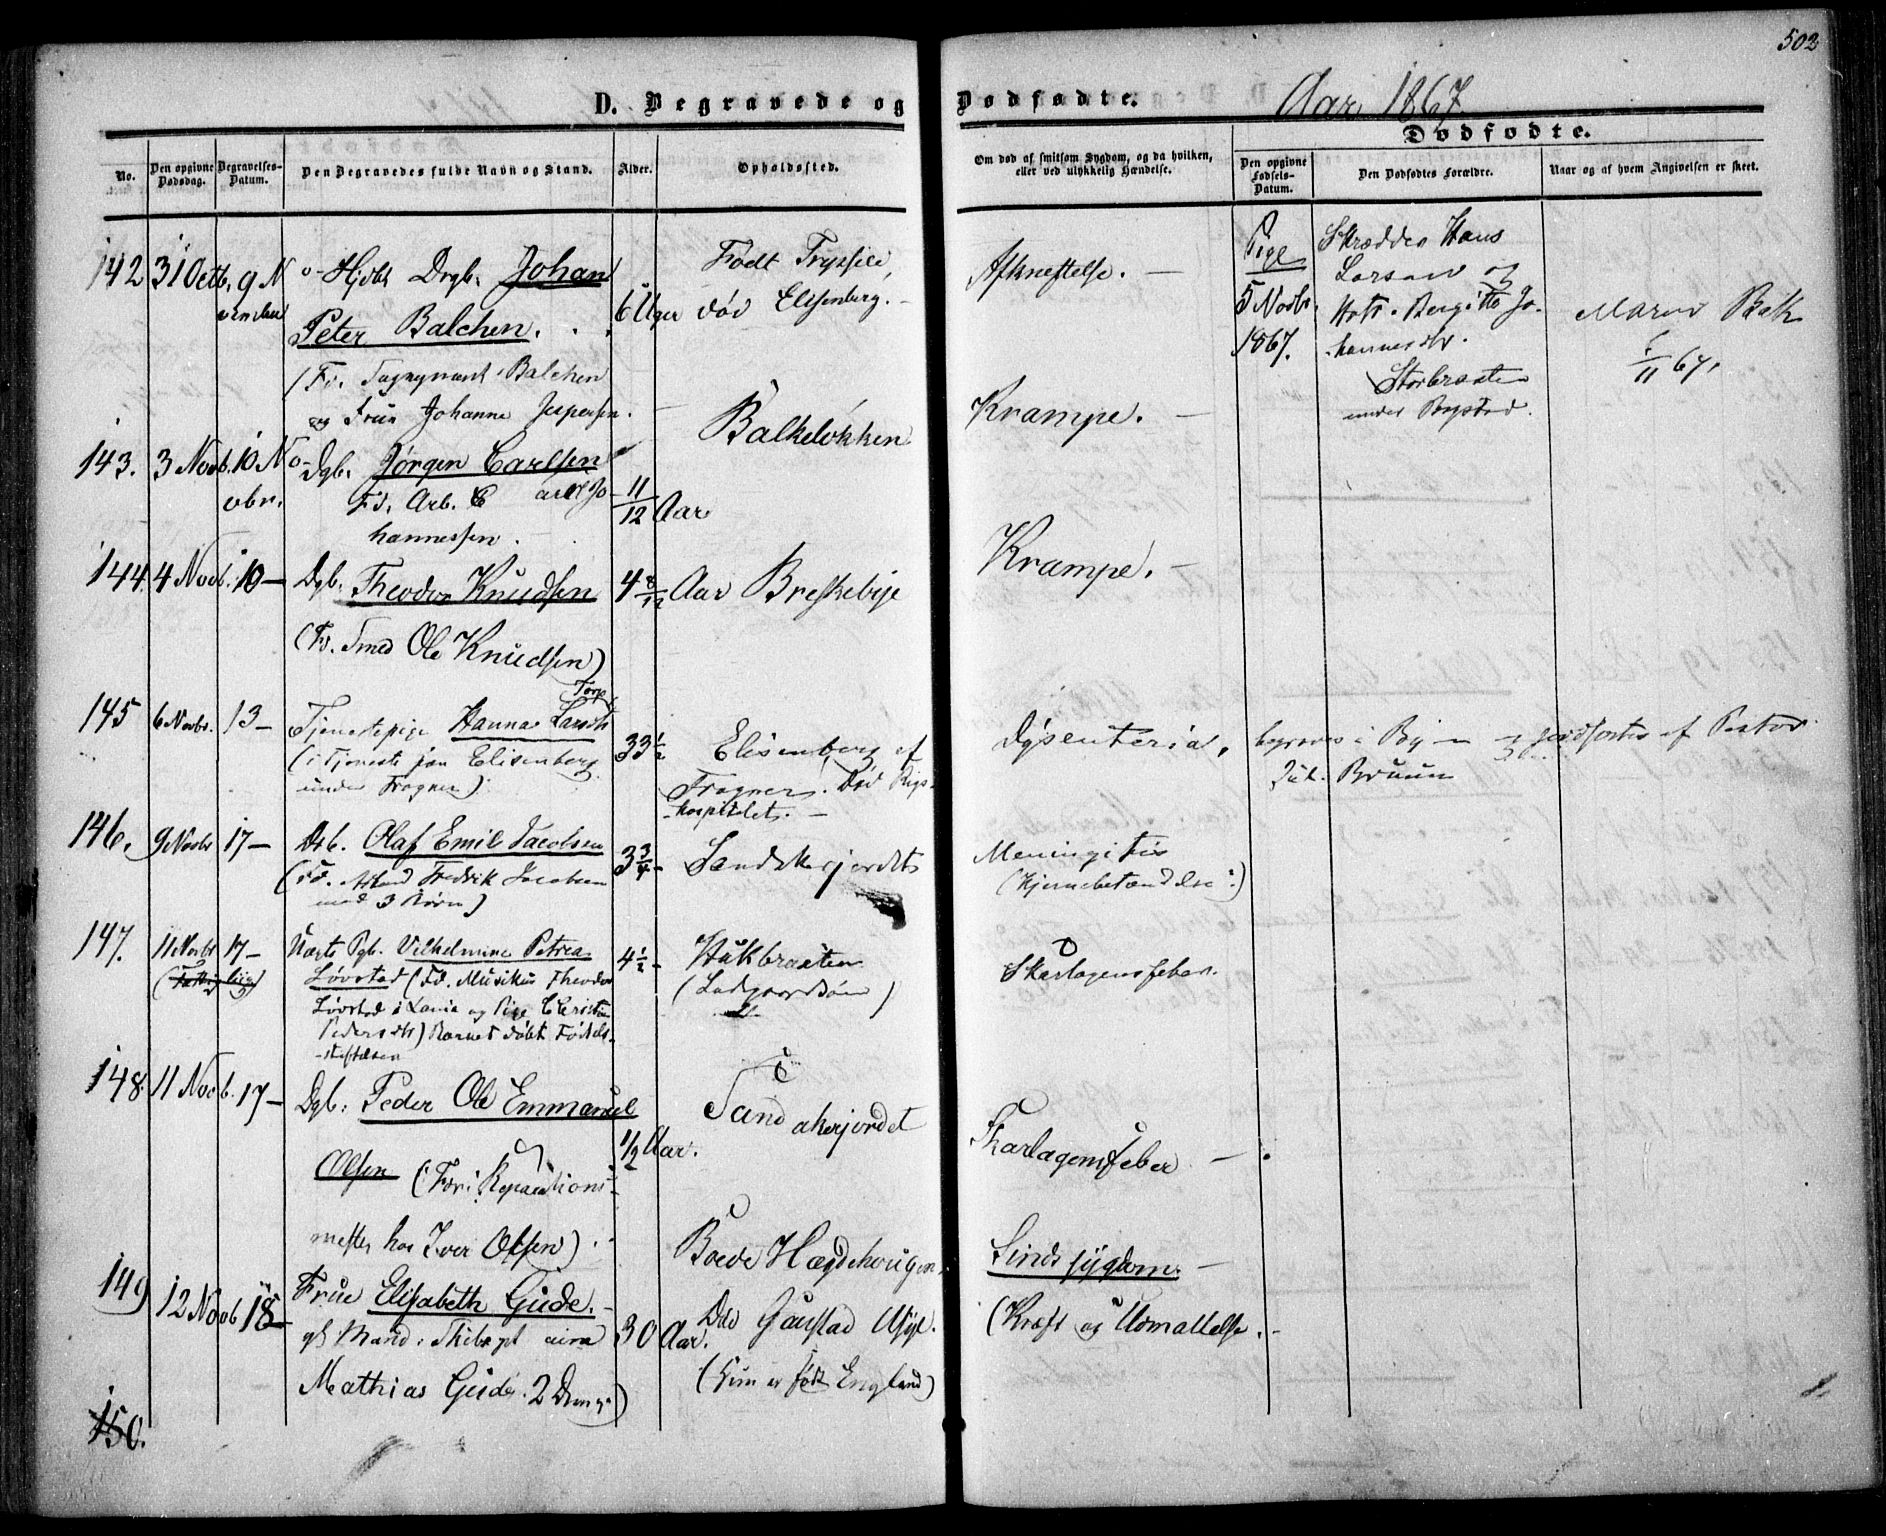 502
D. Begravede og Dødfødte. Aar 1867
Dødfødte.
No.
Den opgivne Dødsdag.
Begravelses-Datum.
Den Begravedes fulde Navn og Stand.
Alder.
Opholdssted.
Om død af smitsom Sygdom, og da hvilken, eller ved ulykkelig Hændelse.
Den opgivne Fødsels-Datum.
Den Dødfødtes Forældre.
Naar og af hvem Angivelsen er skeet.
142 31 Octb. 9 No-
vember
Hjdbt Drgb. Johan
Peter Balchen.
(Fd. Balchen
og Frue Johanne Jespersen.
6 Uger
Født Trysil,
død Elisenberg.
Afkræftelse. -
Pige
5 Novbr.
1867.
Skrædder Hans
Larsen og
Hstr. Bergitte Jo-
hannesdtr.
Storbraaten
under Bygdø.
Maren Bak
/11 67.
143. 3 Novb. 10 No-
vbr.
Dgb. Jørgen Carlsen
Fd. Arb. Carl Jo-
hannessen.
11/12 Aar
Balkeløkken
Krampe. -
144. 4 Novb. 10 -
Dgb. Theodor Knudsen
(Fd. Smed Ole Knudsen)
4 8/12 Aar
Breskebije
Krampe. -
145 6 Novbr. 13 -
Torp
Tjenestepige Hanna Larsdtr
(i Tjeneste paa Elisenberg
under Frogner)
33 1/2
Elisenberg af
Frogner. Død Rigs-
hospitalet. -
Dysenteria,
begraves i By- jordfæstes af Pastor
Jul. Bruun
146. 9 Novbr 17 -
Drb. Olaf Emil Jacobsen
(Fd. Fredrik Jacobsen
med 3 Børn)
3 3/4 -
Sandakerjordet
Meningitis
(Hjernebetændelse)
147. 11 Novbr 17 -
(Fattiglig)
Uægte Pgb. Vilhelmine Petrea
Løvstad (Fd. Musikus Theodor
Løvstad i og Pige Christine
Pedersdtr) Barnet døbt Fødsels-
stiftelsen
4 1/2 -
Hukbraaten
(Ladegaardsøen)
Skarlagensfeber.
148. 11 Novb. 17 -
Dgb: Peder Ole Emmanuel
Olsen (For: Reparations-
mester hos Iver Olsen)
1/2 Aar.
Sandakerjordet
Skarlagensfeber -
149 12 Novb 18 -
Frue Elisabeth Gude.
gft Mand: Skibscpt
Mathias Gude. 2 Drenge)
30 Aar.
Boede Hægdehougen,
Død Gaustad Asyl.
(Hun er født England)
Sindssygdom. -
(Kræft og Udmattelse. -
150.